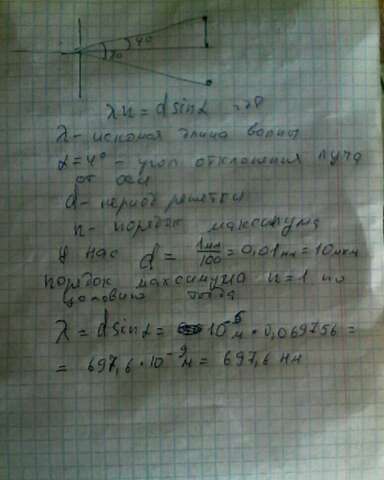 4°
λn = d sinα где
λ - искомая длина волны
α = 4° - угол отклонения луча
от оси
d - период решетки
n - порядок максимума
У нас d = 1мм/100 = 0,01мм = 10мкм
порядок максимума n = 1 по
условию тогда
λ = d sinα = 10⁻⁵м · 0,069756 =
= 697,6 · 10⁻⁹м = 697,6 нм